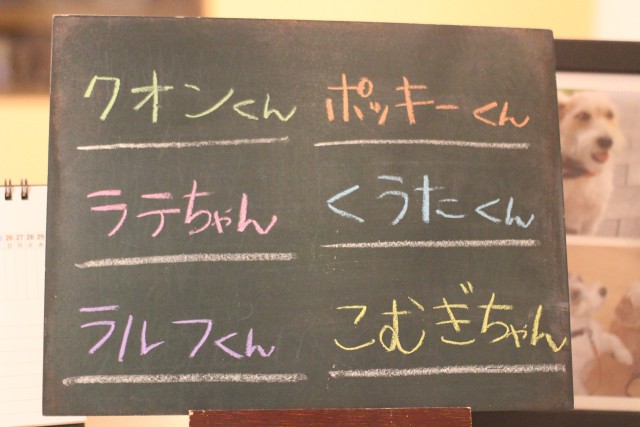 クオンくん ポッキーくん
ラテちゃん くうたくん
ラルフくん こむぎちゃん
26 27 28 29